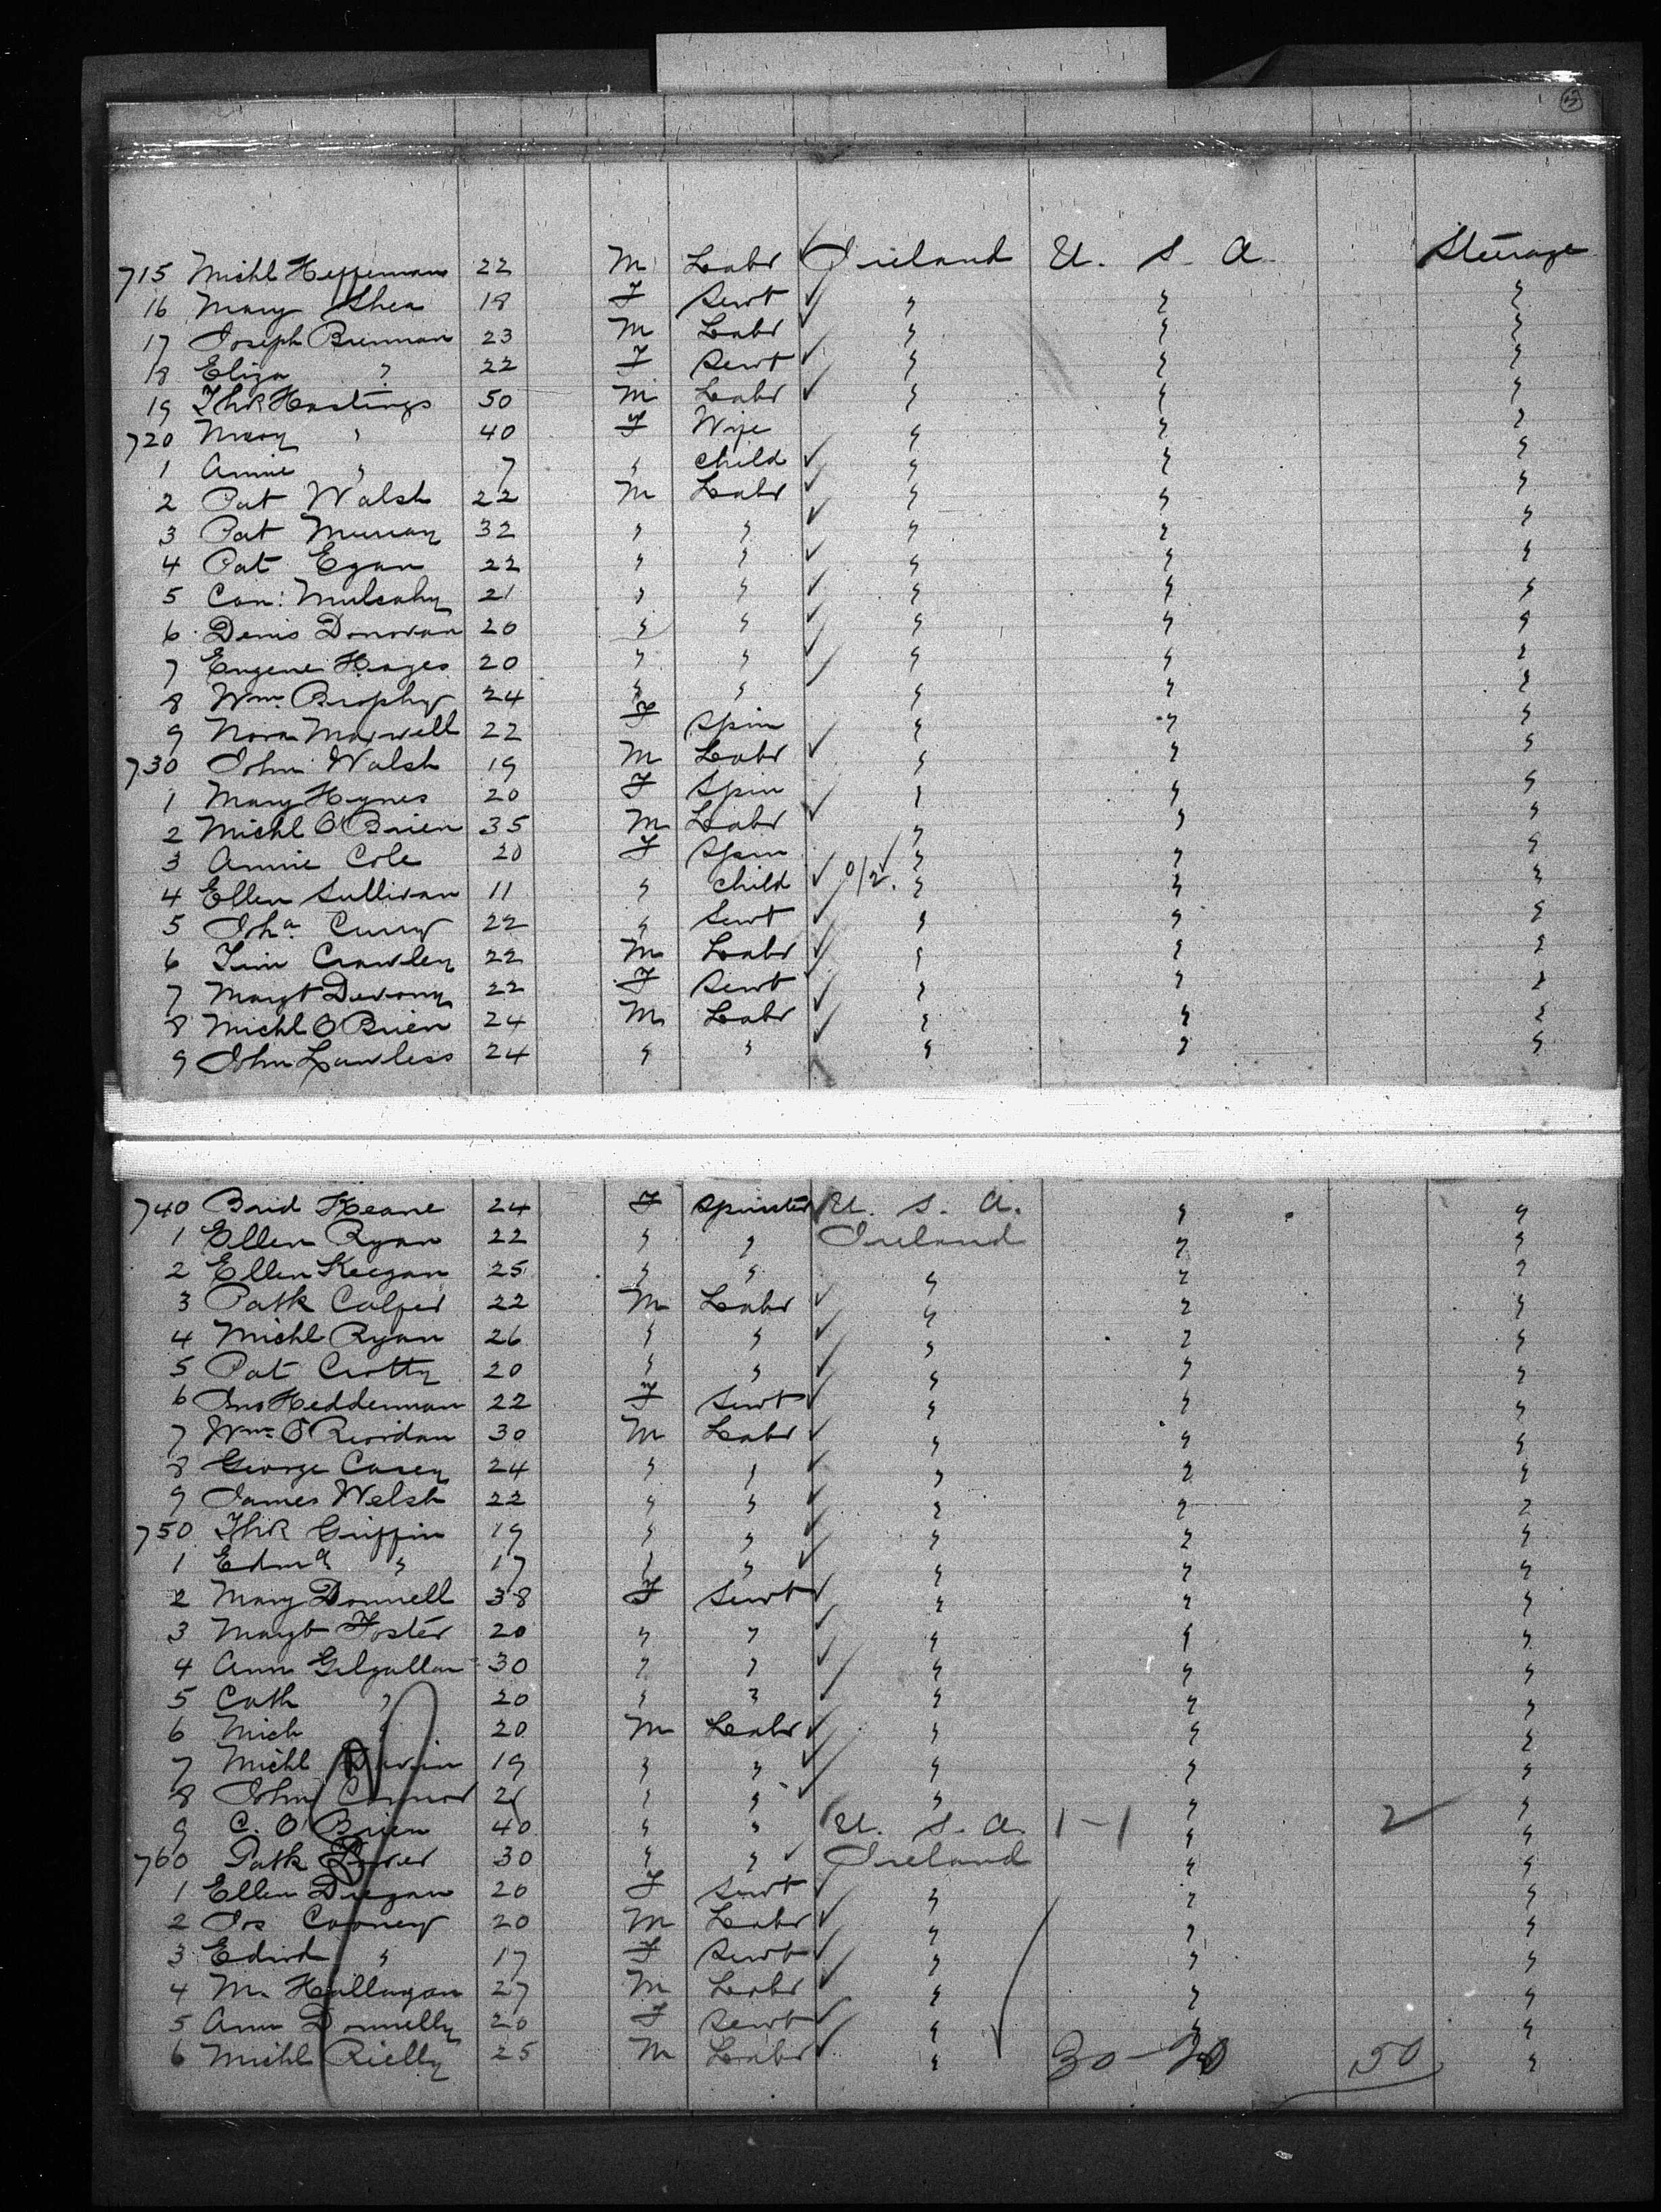 715 Michl Heffernan 22 M Labr ✓ Ireland U. S. A. Steerage
16 Mary Shea 18 F Servt ✓ " " "
17 Joseph Brennan 23 M Labr " " "
18 Eliza " 22 F Servt ✓ " " "
19 Thos Hastings 50 M Labr ✓ " " "
720 Mary " 40 F Wife " " "
1 Annie " 7 " child ✓ " " "
2 Pat Walsh 22 M Labr ✓ " " "
3 Pat Murray 32 " " ✓ " " "
4 Pat Egan 22 " " ✓ " " "
5 Con: Mulcahy 21 " " ✓ " " "
6 Denis Donovan 20 " " ✓ " " "
7 Eugene Hayes 20 " " ✓ " " "
8 Wm. Brophy 24 " " " " "
9 Nora Maxwell 22 F Spin ✓ " " "
730 John Walsh 19 M Labr ✓ " " "
1 Mary Hynes 20 F Spin " " "
2 Michl O'Brien 35 M Labr ✓ " " "
3 Annie Cole 20 F Spin ✓ " " "
4 Ellen Sullivan 11 " child ✓ 0/2. " " "
5 Joha. Curry 22 " Servt ✓ " " "
6 Tim Crowley 22 M Labr ✓ " " "
7 Margt Devony 22 F Servt ✓ " " "
8 Michl O'Brien 24 M Labr ✓ " " "
9 John Lawless 24 " " " " "
740 Brid Keane 24 F Spinster U. S. A. " "
1 Ellen Ryan 22 " " Ireland " "
2 Ellen Keegan 25 " " " " "
3 Patk 22 M Labr ✓ " " "
4 Michl Ryan 26 " " ✓ " " "
5 Pat Crotty 20 " " ✓ " " "
6 Hedderman 22 F Servt ✓ " " "
7 Wm. O'Riordan 30 M Labr ✓ " " "
8 George Casey 24 " " ✓ " " "
9 James Welsh 22 " " ✓ " " "
750 Thos Griffin 19 " " ✓ " " "
1 Edmd. " 17 " " ✓ " " "
2 Mary Donnell 38 F Servt ✓ " " "
3 Margt Foster 20 " " ✓ " " "
4 Ann Gilgallan 30 " " ✓ " " "
5 Cath " 20 " " ✓ " " "
6 Mich " 20 M Labr ✓ " " "
7 Michl 19 " " ✓ " " "
8 John Connor 21 " " ✓ " " "
9 C. O'Brien 40 " " U. S. A. 1-1 " 2 "
760 Patk Power 30 " " ✓ Ireland " "
1 Ellen Dregan 20 F Servt " " "
2 Jos Cooney 20 M Labr ✓ " " "
3 Edwd " 17 F Servt ✓ " " "
4 M. Hallagan 27 M Labr ✓ " " "
5 Ann Donnelly 20 F Servt ✓ " " "
6 Michl Rielly 25 M Labr ✓ " 30-20 50 "